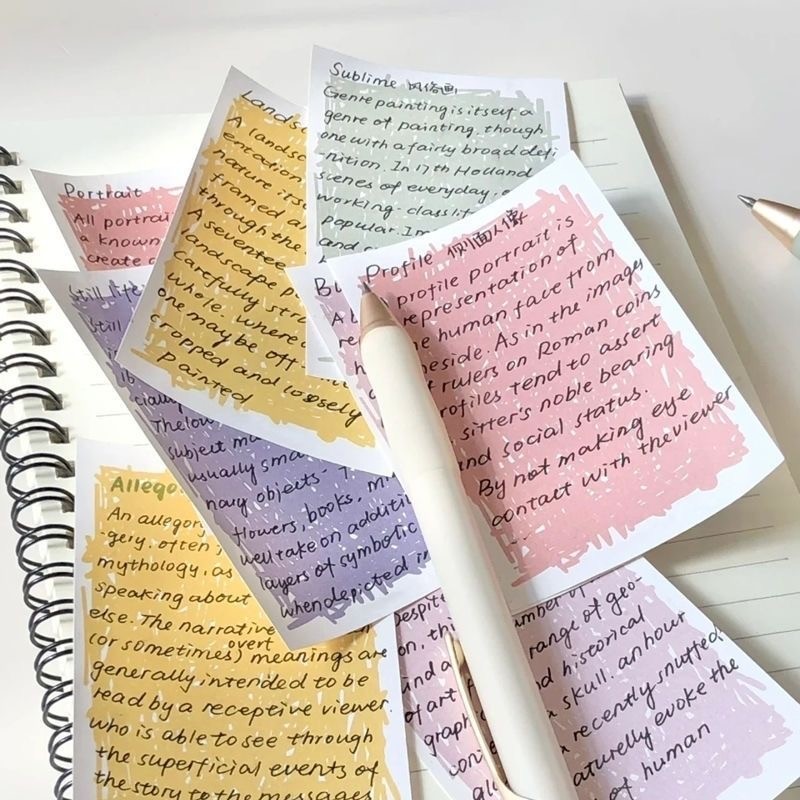 Sublime 风俗画
Genre painting is itself a
genre of painting, though
one with a fairly broad defi
nition. In 17th Holland
scenes of everyday,
working-class lif
popular. Im
and
Landsc
A landsc
entation
nature itse
framed a
through the
A seventee
landscape p
Carefully str
whole, where
one may be off
cropped and loosely
painted
Portrait
All portrai
a known
create a
Profile 侧面人像
profile portrait is
representation of
he human face from
eside. As in the images
f rulers on Roman coins
rofiles tend to assert
sitter's noble bearing
and social status.
By not making eye
contact with the viewer
...
Bu
Still life
Still
cially
The low
subject ma
usually sma
nary objects-
flowers, books, m
well take on additi
layers of symbolic
when depicted in
Allego
An allegory
-gery, often
mythology, as
speaking about
else. The narrative
overt
(or sometimes) meanings are
generally intended to be
read by a receptive viewer.
who is able to see through
the superficial events of
the story to the messages
umber of
Despit range of geo-
on, thi d historical
und a a skull. an hour
of art a recently snuffed
graphic aturelly evoke the
conte of human